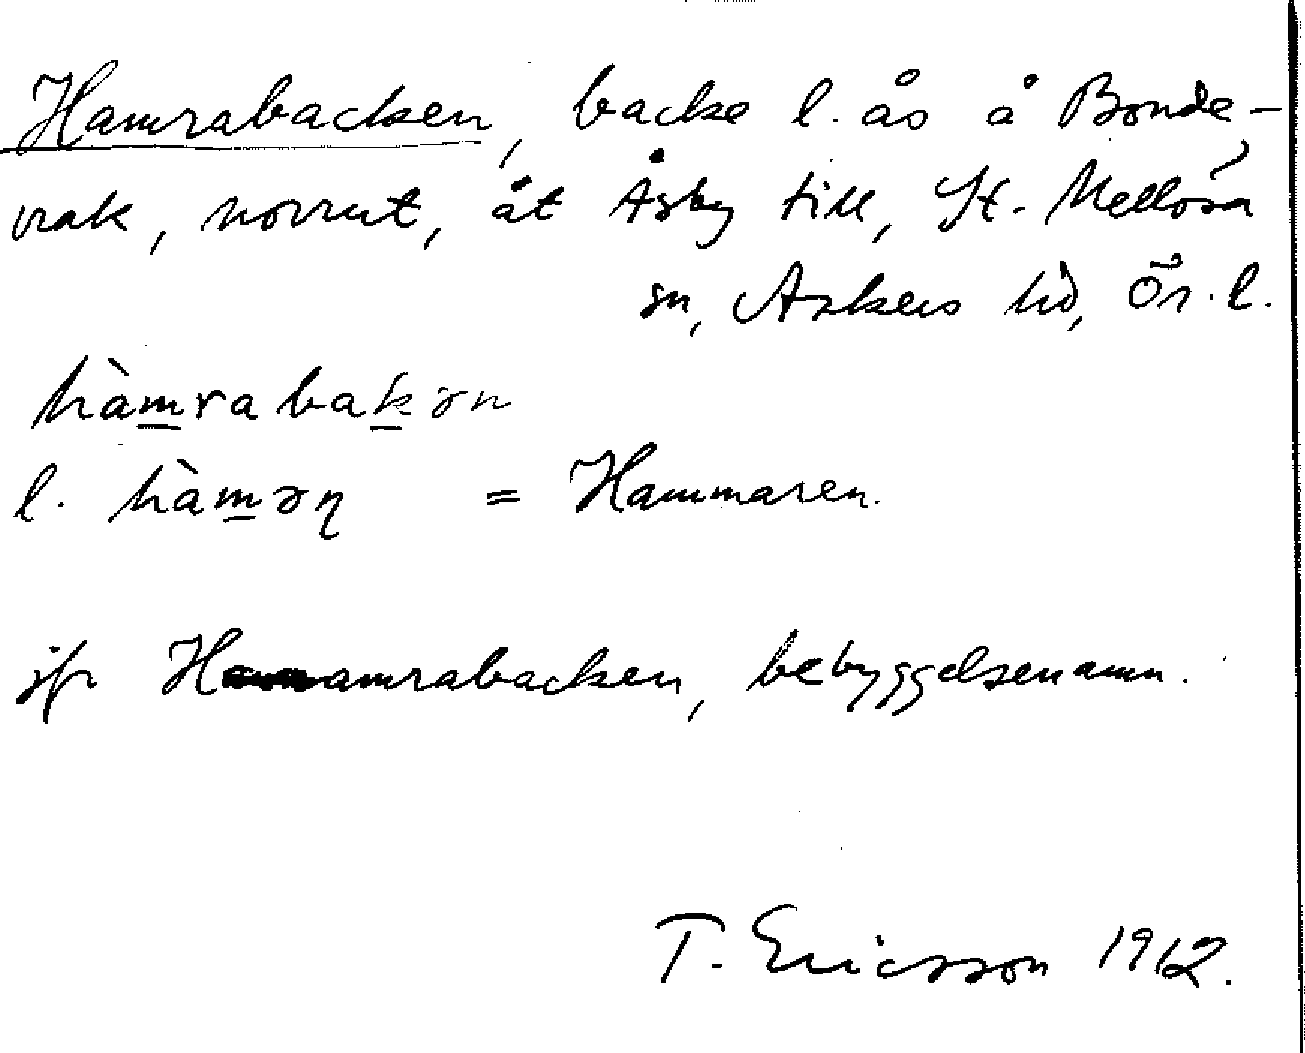 Hamrabacken, backe l. ås å Bonde-
vrak, norrut, åt Åsby till, St. Mellösa
sn, Askers hd, Ör. l.
hàmrabakən
l. hàməɳ = Hammaren.
jfr Hamrabacken, bebyggelsenamn.
T. Ericsson 1912.